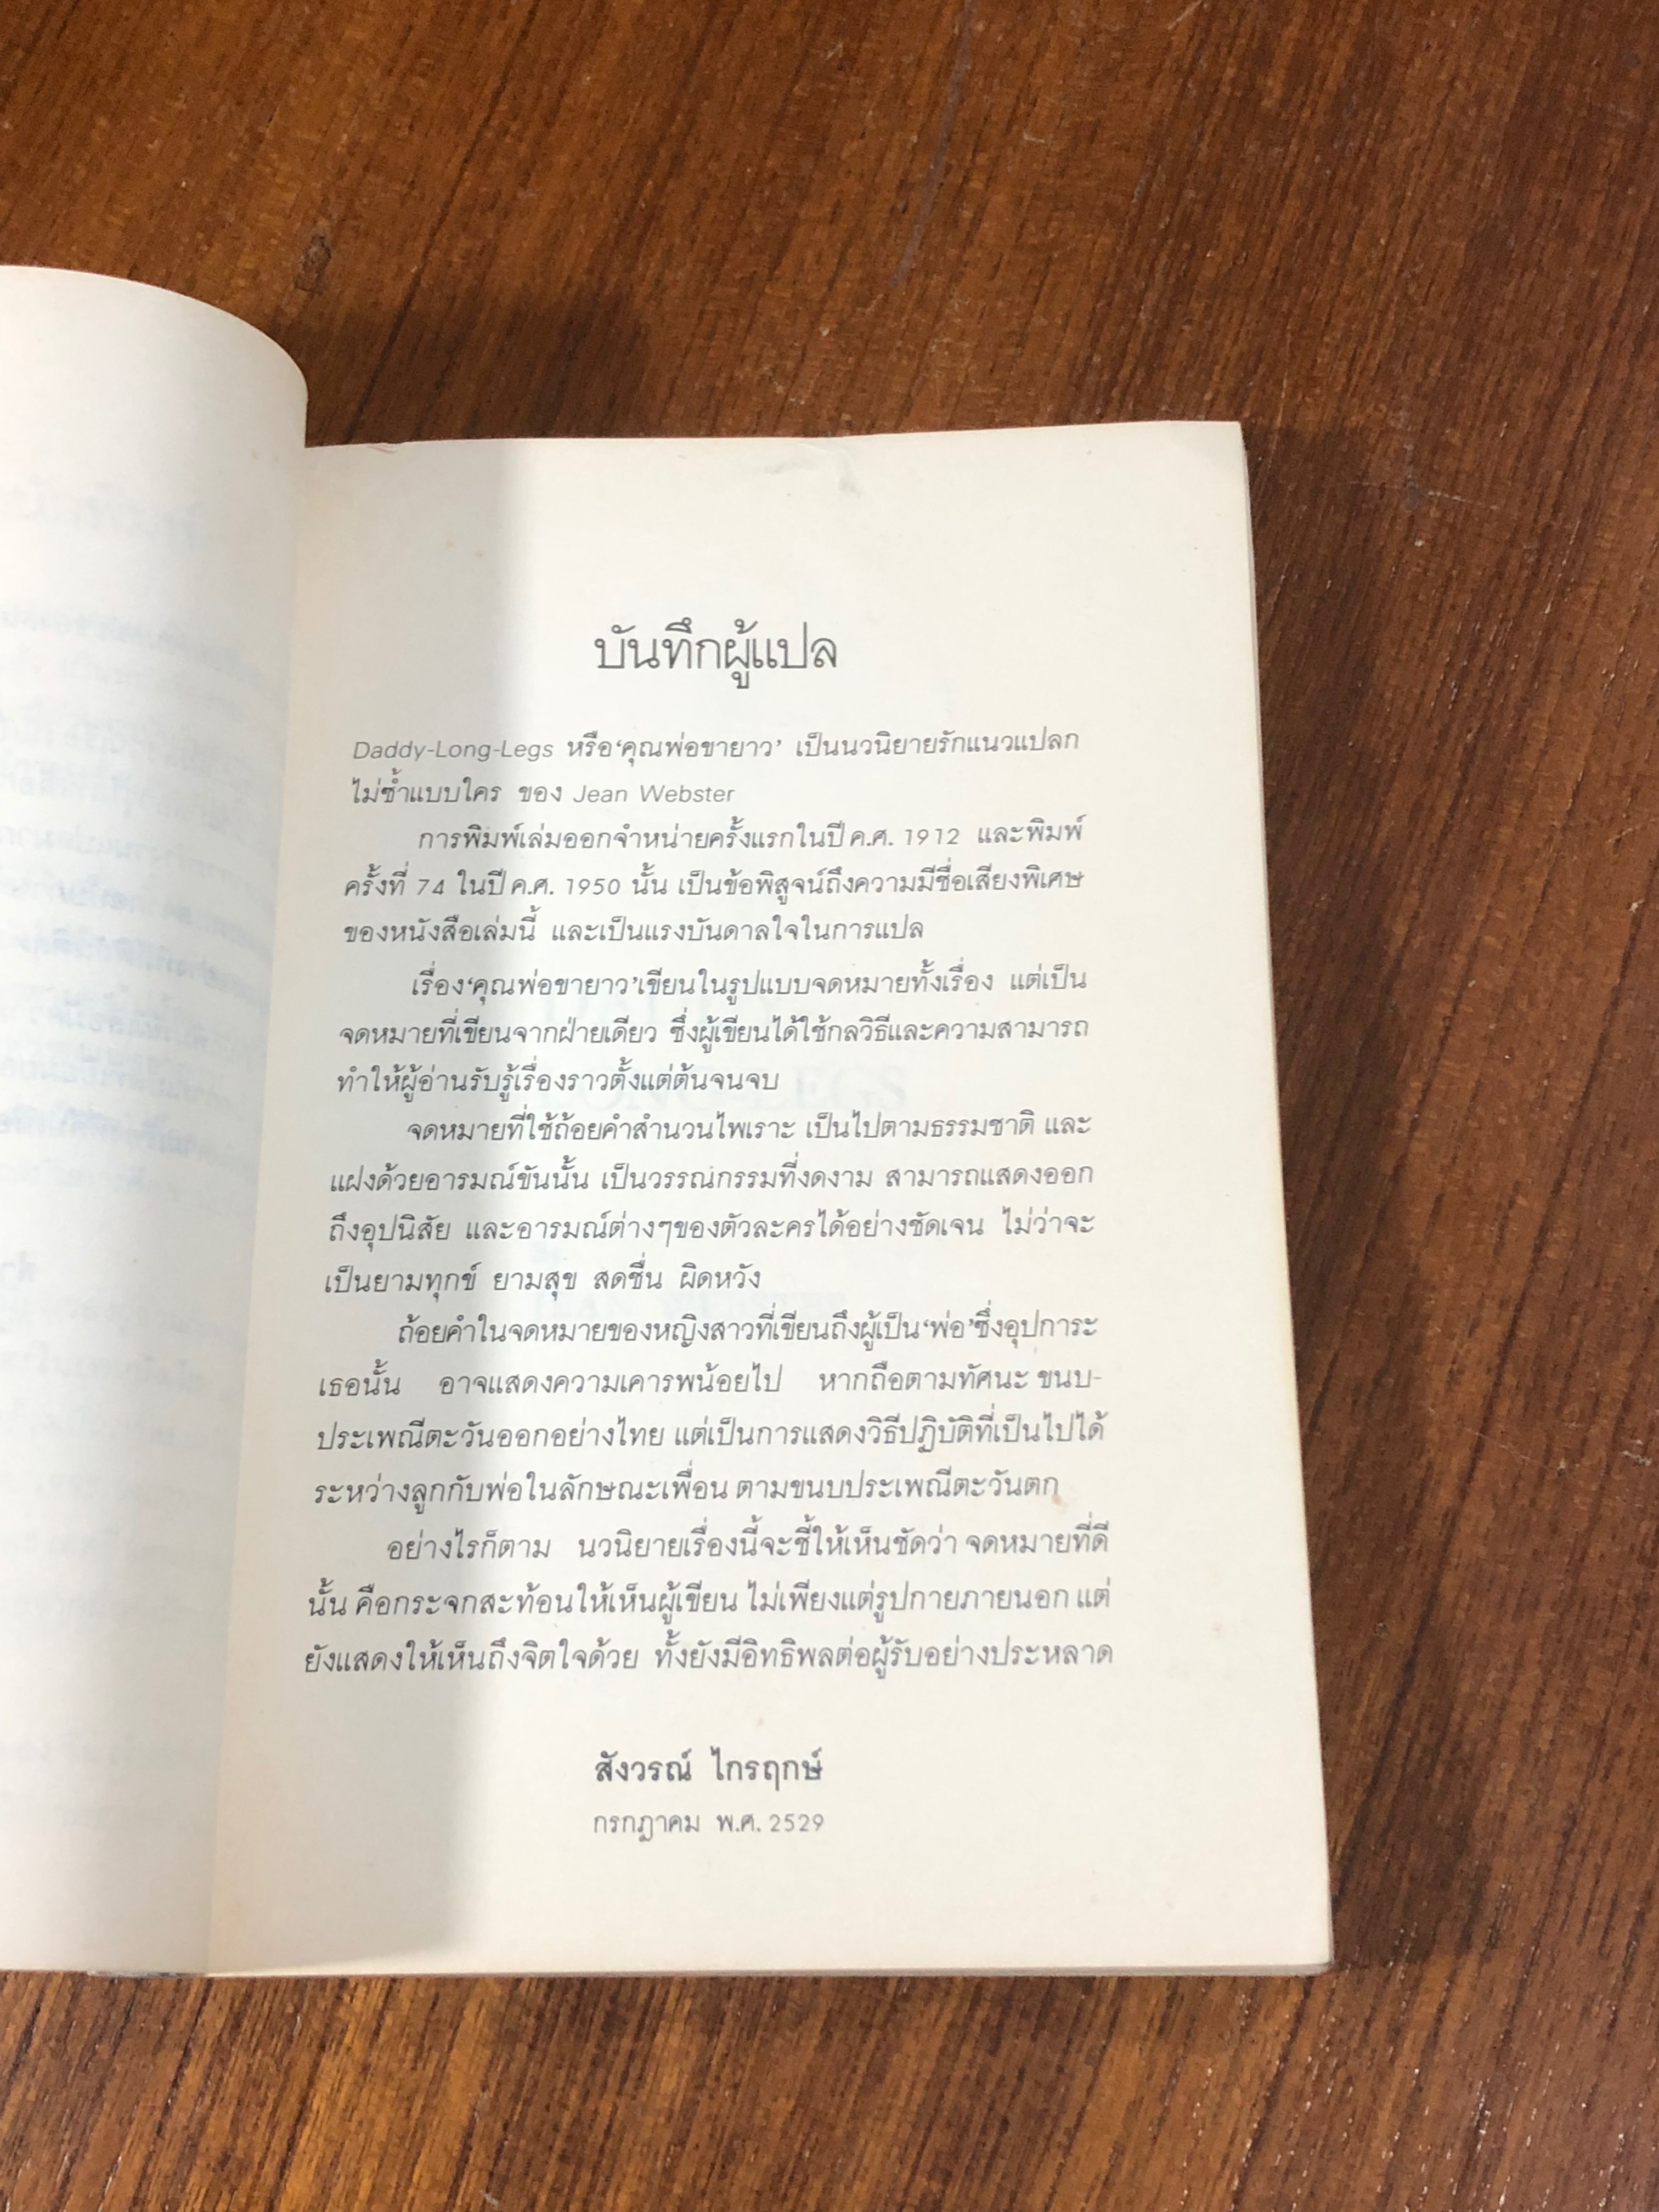 บันทึกผู้แปล
Daddy-Long-Legs หรือ‘คุณพ่อขายาว’ เป็นนวนิยายรักแนวแปลก
ไม่ซ้ำแบบใคร ของ Jean Webster
การพิมพ์เล่มออกจำหน่ายครั้งแรกในปี ค.ศ. 1912 และพิมพ์
ครั้งที่ 74 ในปี ค.ศ. 1950 นั้น เป็นข้อพิสูจน์ถึงความมีชื่อเสียงพิเศษ
ของหนังสือเล่มนี้ และเป็นแรงบันดาลใจในการแปล
เรื่อง‘คุณพ่อขายาว’เขียนในรูปแบบจดหมายทั้งเรื่อง แต่เป็น
จดหมายที่เขียนจากฝ่ายเดียว ซึ่งผู้เขียนได้ใช้กลวิธีและความสามารถ
ทำให้ผู้อ่านรับรู้เรื่องราวตั้งแต่ต้นจนจบ
จดหมายที่ใช้ถ้อยคำสำนวนไพเราะ เป็นไปตามธรรมชาติ และ
แฝงด้วยอารมณ์ขันนั้น เป็นวรรณกรรมที่งดงาม สามารถแสดงออก
ถึงอุปนิสัย และอารมณ์ต่างๆของตัวละครได้อย่างชัดเจน ไม่ว่าจะ
เป็นยามทุกข์ ยามสุข สดชื่น ผิดหวัง
ถ้อยคำในจดหมายของหญิงสาวที่เขียนถึงผู้เป็น‘พ่อ’ซึ่งอุปการะ
เธอนั้น อาจแสดงความเคารพน้อยไป หากถือตามทัศนะ ขนบ-
ประเพณีตะวันออกอย่างไทย แต่เป็นการแสดงวิธีปฏิบัติที่เป็นไปได้
ระหว่างลูกกับพ่อในลักษณะเพื่อน ตามขนบประเพณีตะวันตก
อย่างไรก็ตาม นวนิยายเรื่องนี้จะชี้ให้เห็นชัดว่า จดหมายที่ดี
นั้น คือกระจกสะท้อนให้เห็นผู้เขียน ไม่เพียงแต่รูปกายภายนอก แต่
ยังแสดงให้เห็นถึงจิตใจด้วย ทั้งยังมีอิทธิพลต่อผู้รับอย่างประหลาด
สังวรณ์ ไกรฤกษ์
กรกฎาคม พ.ศ. 2529